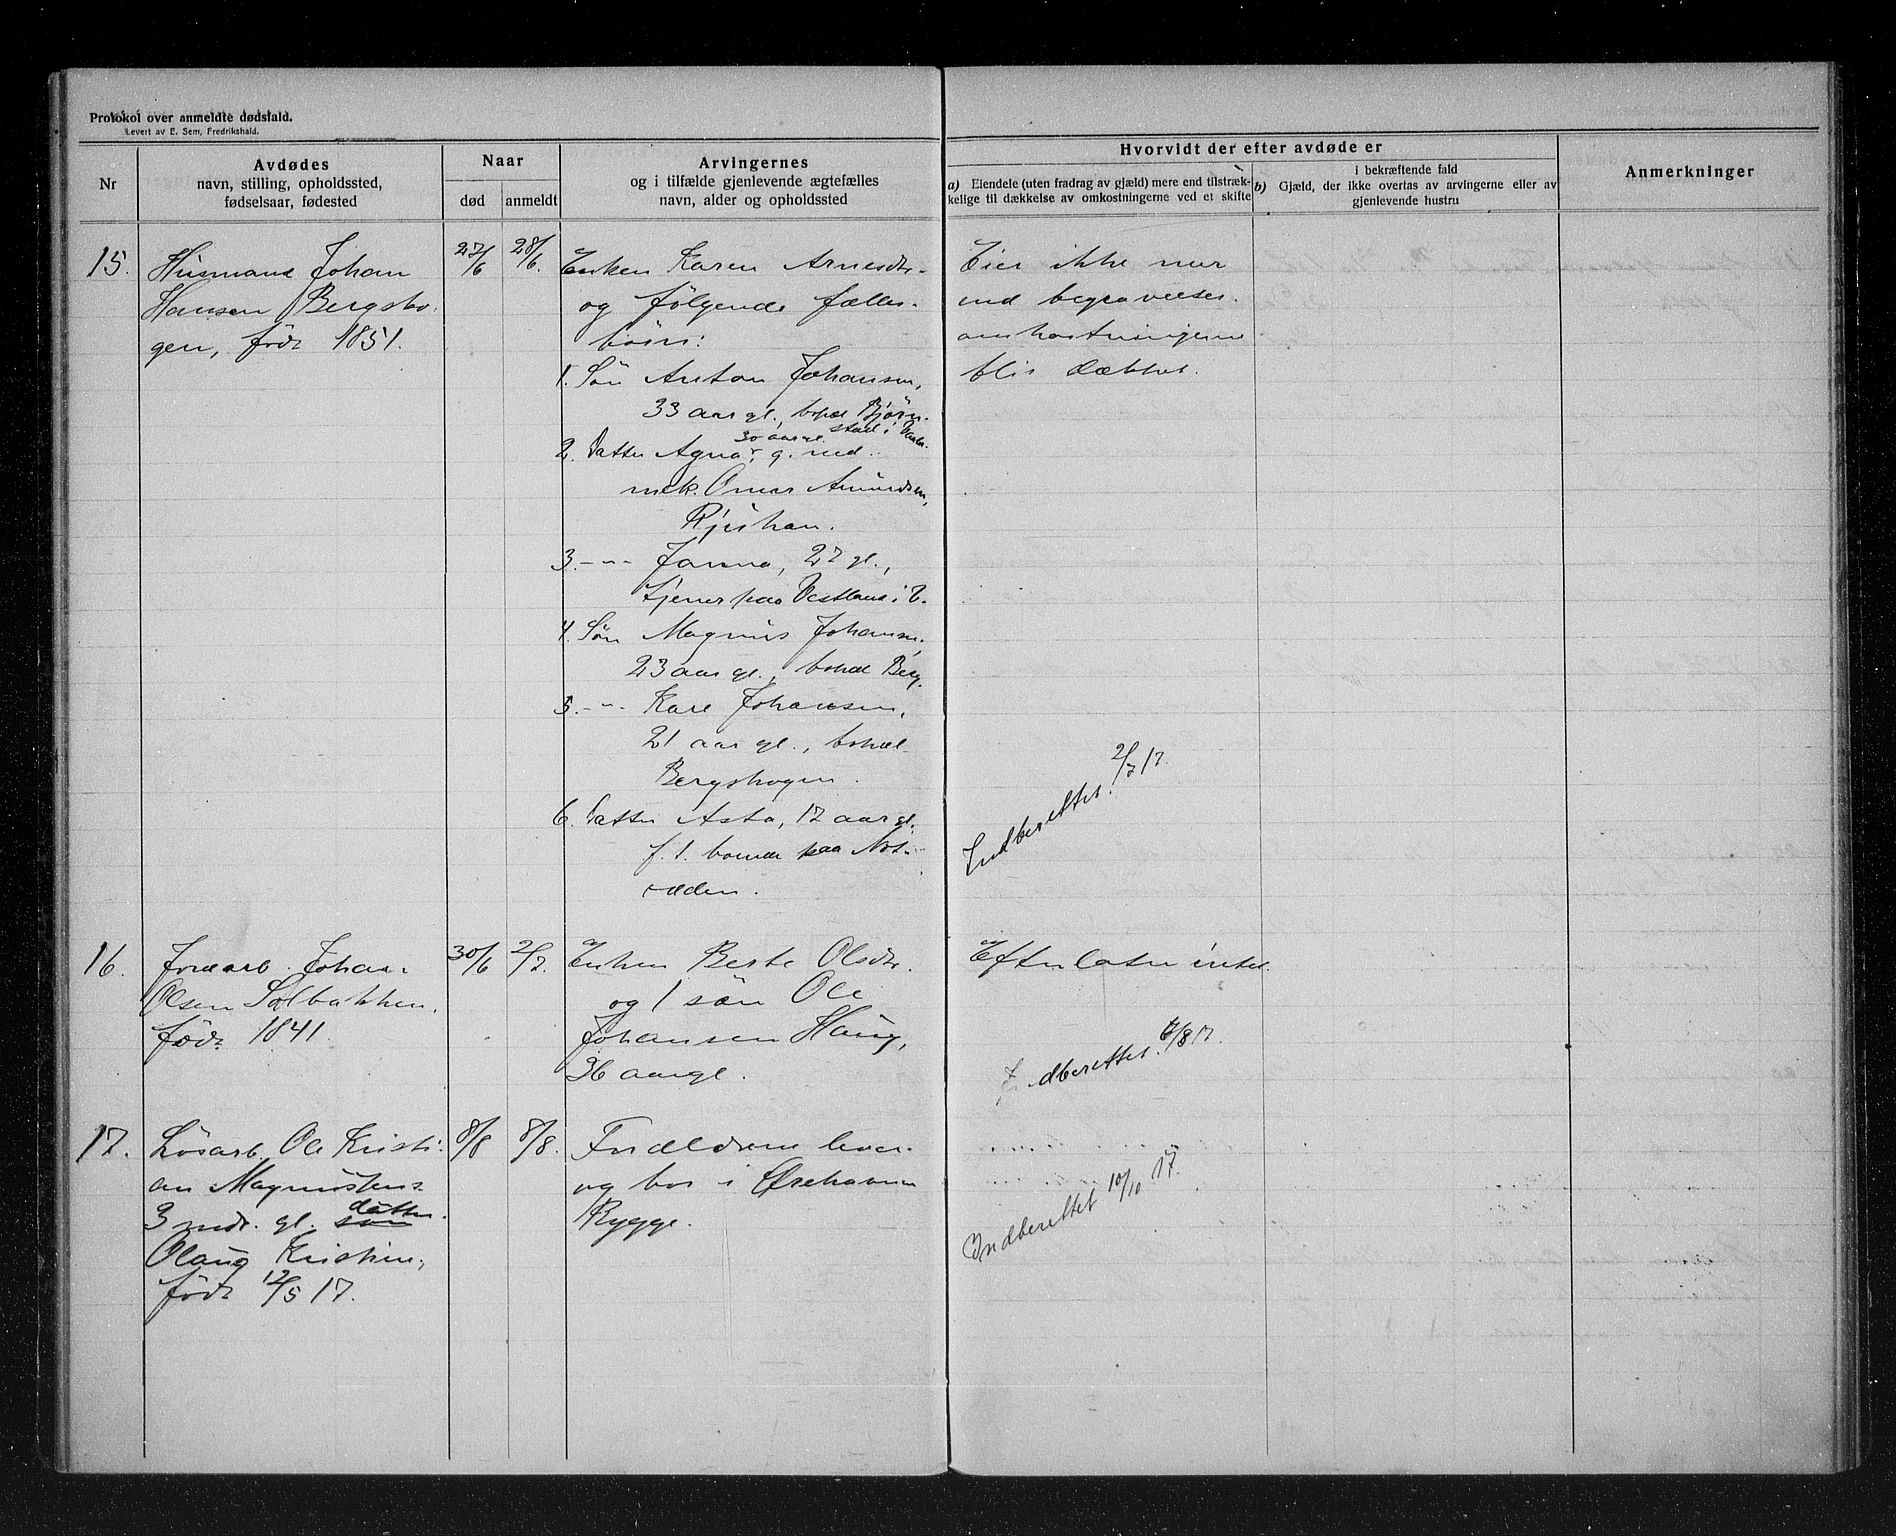 Protokol over anmeldte dødsfald.
Levert av E. Sem, Fredrikshald.
Nr
Avdødes
navn, stilling, opholdssted,
fødselsaar, fødested
Naar
død
anmeldt
Arvingernes
og i tilfælde gjenlevende ægtefælles
navn, alder og opholdssted
Hvorvidt der efter avdøde er
a) Eiendele (uten fradrag av gjæld) mere end tilstræk-
kelige til dækkelse av omkostningerne ved et skifte
i bekræftende fald
b) Gjæld, der ikke overtas av arvingerne eller av
gjenlevende hustru
Anmerkninger
15. Husmand Johan
Hansen Bergsko-
gen, født 1851.
27/6 28/6.
Enken Karen Arnesdtr.
og følgende fælles-
børn:
1. Søn Anton Johansen,
33 aar gl., bopæl Bjørn-
stad i
2. Datter Agna, 30 aar gl. g. med
mek. Omar Amundsen,
Rjukan.
3. -"- Janna, 27 gl.,
tjener paa Vestland i V.
4. Søn Magnus Johansen,
23 aar gl., bopæl Berg.
5. -"- Kare Johansen,
21 aar gl., bopæl
Bergskogen.
6. Datter Asta, 17 aar gl.
f. t. boende paa Not-
odden.
Eier ikke mer
end begravelses-
omkostningerne
blir dækket.
Indberettet 2/7 17.
16. Jordarb. Johan
Olsen Solbakken,
født 1841.
30/6 2/7.
Enken Berte Olsdtr.
og 1 søn Ole
Johansen Haug,
36 aar gl.
Efterlater intet.
Indberettet 6/8 17.
17. Løsarb. Ole Kristi-
an Magnussens
3 mdr. gl. søn datter
Olaug Kristine,
født 12/5 17.
8/8 8/8.
Forældrene lever
og bor i Ørehavnen
Rygge.
Indberettet 10/10 17.